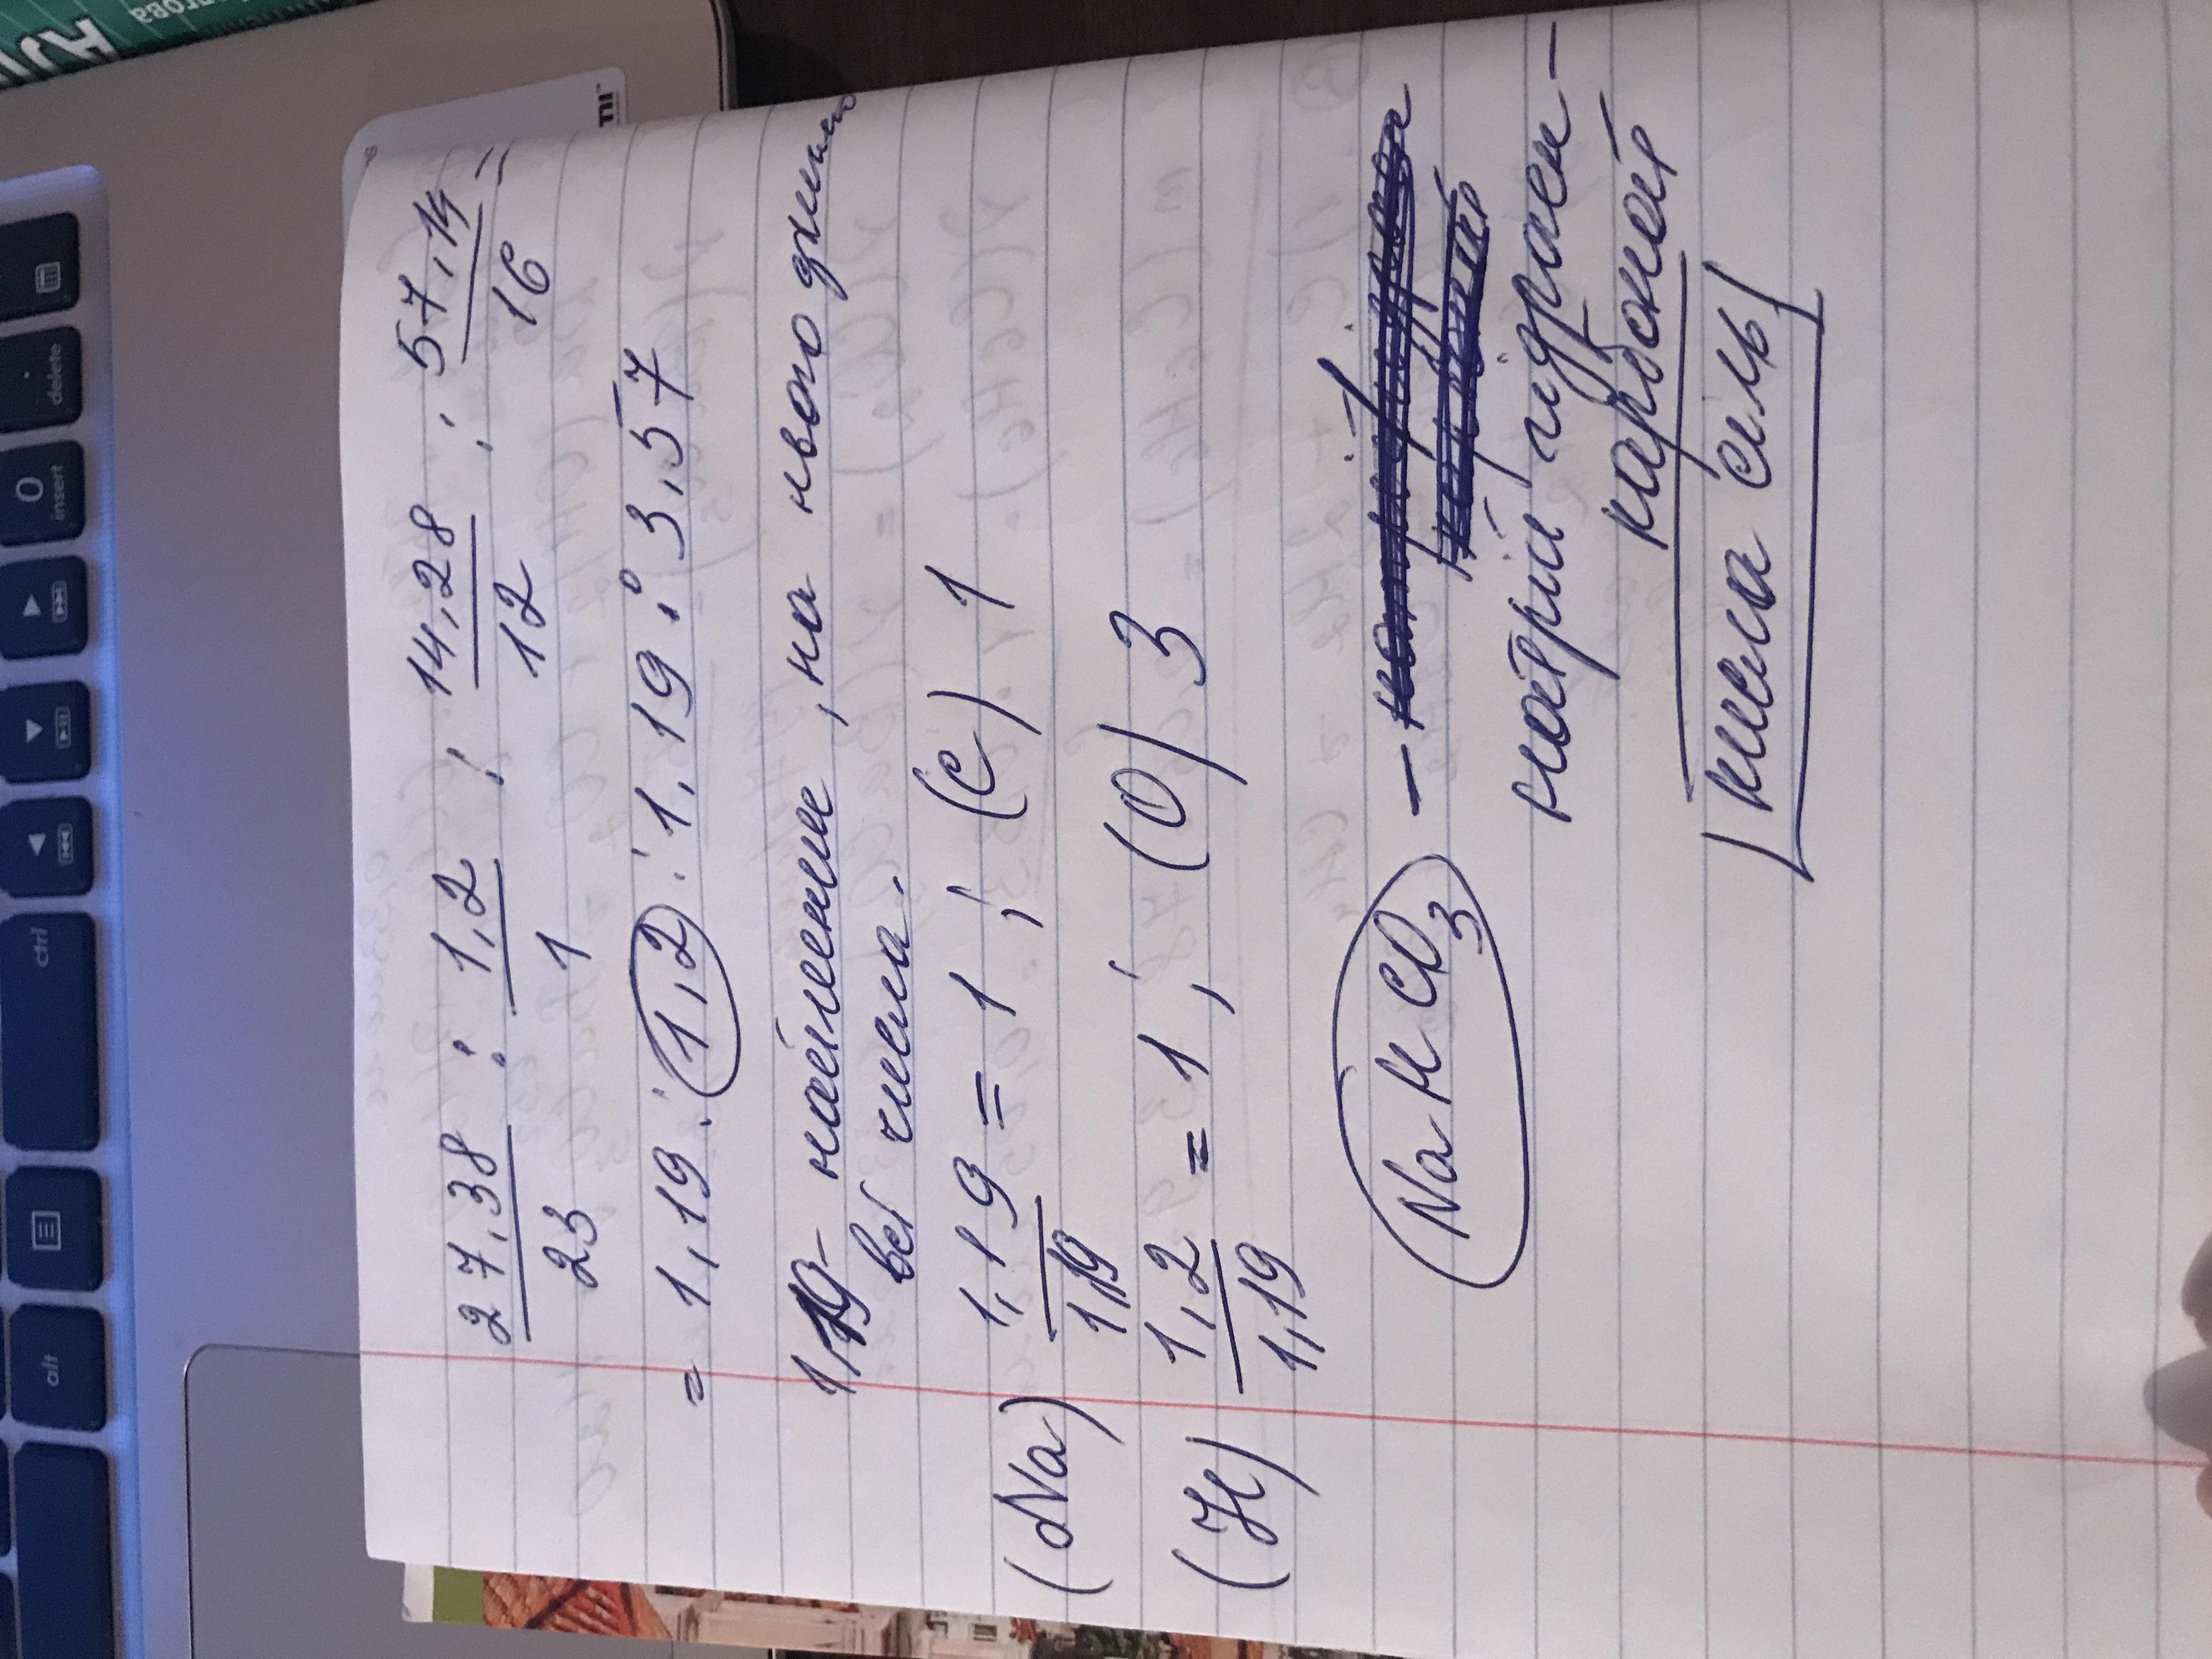 27,38/23 : 1,2/1 : 14,28/12 : 57,14/16 =
= 1,19 : 1,2 : 1,19 : 3,57
1,19 - найменше, на нього ділимо
всі числа.
(Na) 1,19/1,19 = 1 ; (C) 1
(H) 1,2/1,19 = 1 ; (O) 3
NaHCO3 -
натрій гідроген-
карбонат
кисла сіль
ctrl
alt
delete
0
insert
mi